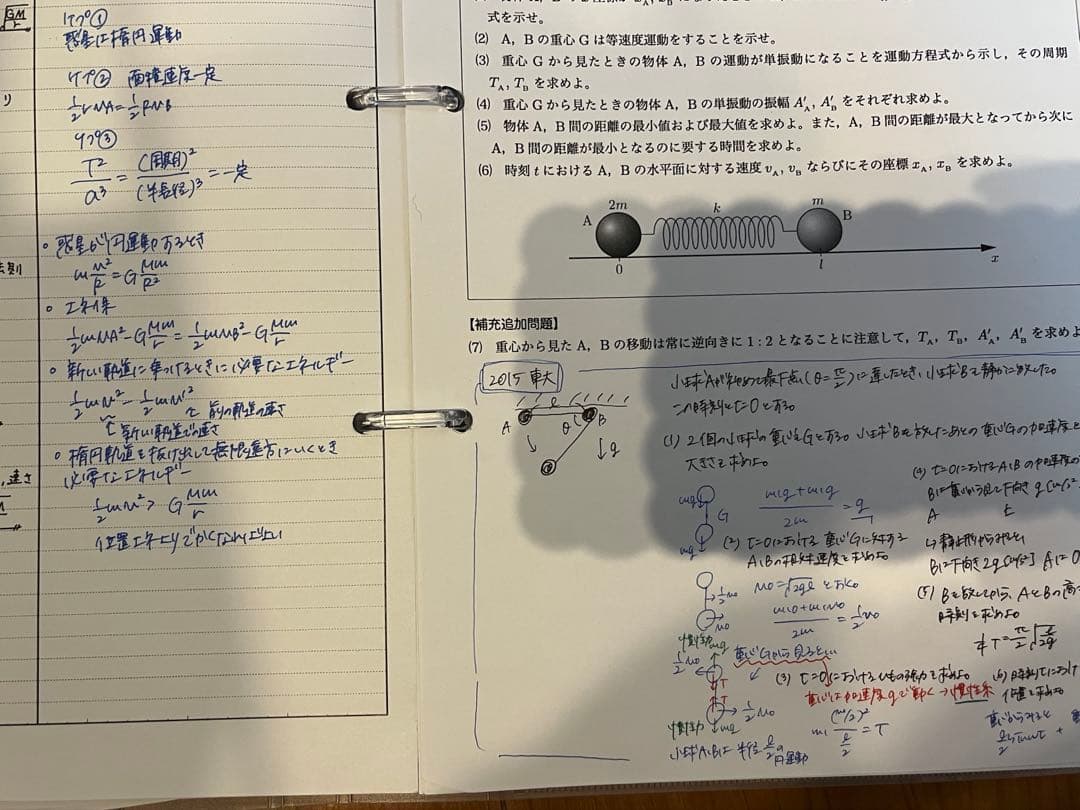 GM
r
り
法則
速さ
ケプ①
惑星は楕円運動
ケプ② 面積速度一定
1/2 r vA = 1/2 R vB
ケプ③
T²/a³ = (周期)²/(半長径)³ = 一定
○ 惑星が円運動するとき
m v²/R = G Mm/R²
○ エネ保
1/2 m vA² - G Mm/r = 1/2 m vB² - G Mm/r
○ 新しい軌道に乗っけるときに必要なエネルギー
1/2 m v² - 1/2 m v'²
↑ 前の軌道の速さ
↑ 新しい軌道での速さ
○ 楕円軌道を抜け出して無限遠方にいくとき
必要なエネルギー
1/2 m v² > G Mm/r
位置エネよりでかくなればよい
式を示せ。
(2) A，Bの重心Gは等速度運動をすることを示せ。
(3) 重心Gから見たときの物体A，Bの運動が単振動になることを運動方程式から示し，その周期
T_A, T_B を求めよ。
(4) 重心Gから見たときの物体A，Bの単振動の振幅 A'_A, A'_B をそれぞれ求めよ。
(5) 物体A，B間の距離の最小値および最大値を求めよ。また，A，B間の距離が最大となってから次に
A，B間の距離が最小となるのに要する時間を求めよ。
(6) 時刻 t におけるA，Bの水平面に対する速度 v_A, v_B ならびにその座標 x_A, x_B を求めよ。
2m k m
A B
0 l x
【補充追加問題】
(7) 重心から見たA，Bの移動は常に逆向きに1：2となることに注意して，T_A，T_B，A'_A，A'_B を求めよ
2015 東大
l
A θ B
↓g
小球Aが初めて最下点(θ=π/2)に達したとき，小球Bを静かに放した。
この時刻をt=0とする
(1) 2個の小球の重心をGとする。小球Bを放したあとの重心Gの加速度と
大きさを求めよ
mg
G
mg
mg+mg/2m = g
(2) t=0における重心Gに対する
A,Bの相対速度を求めよ
1/2 v0
v0
v0=√2gl とおく。
m·0+mv0/2m = 1/2 v0
慣性力 mg
1/2 v0
T
T
1/2 v0
慣性力 mg
重心Gから見るとい
(3) t=0におけるひもの張力を求めよ
重心は加速度gで動く → 慣性系
m (v0/2)²/(l/2) = T
小球A,Bは半径l/2の
円運動
(4) t=0におけるA,Bの加速度の
Bは重心から見て下向き
A
↳ 静止形からみると
Bは下向き2g[m/s²] Aは0
(5) Bを放してから，AとBの高
時刻を求めよ
1/4 T = π/2 √l/2g
(6) 時刻tにおけ
位置を求めよ
重心からみると